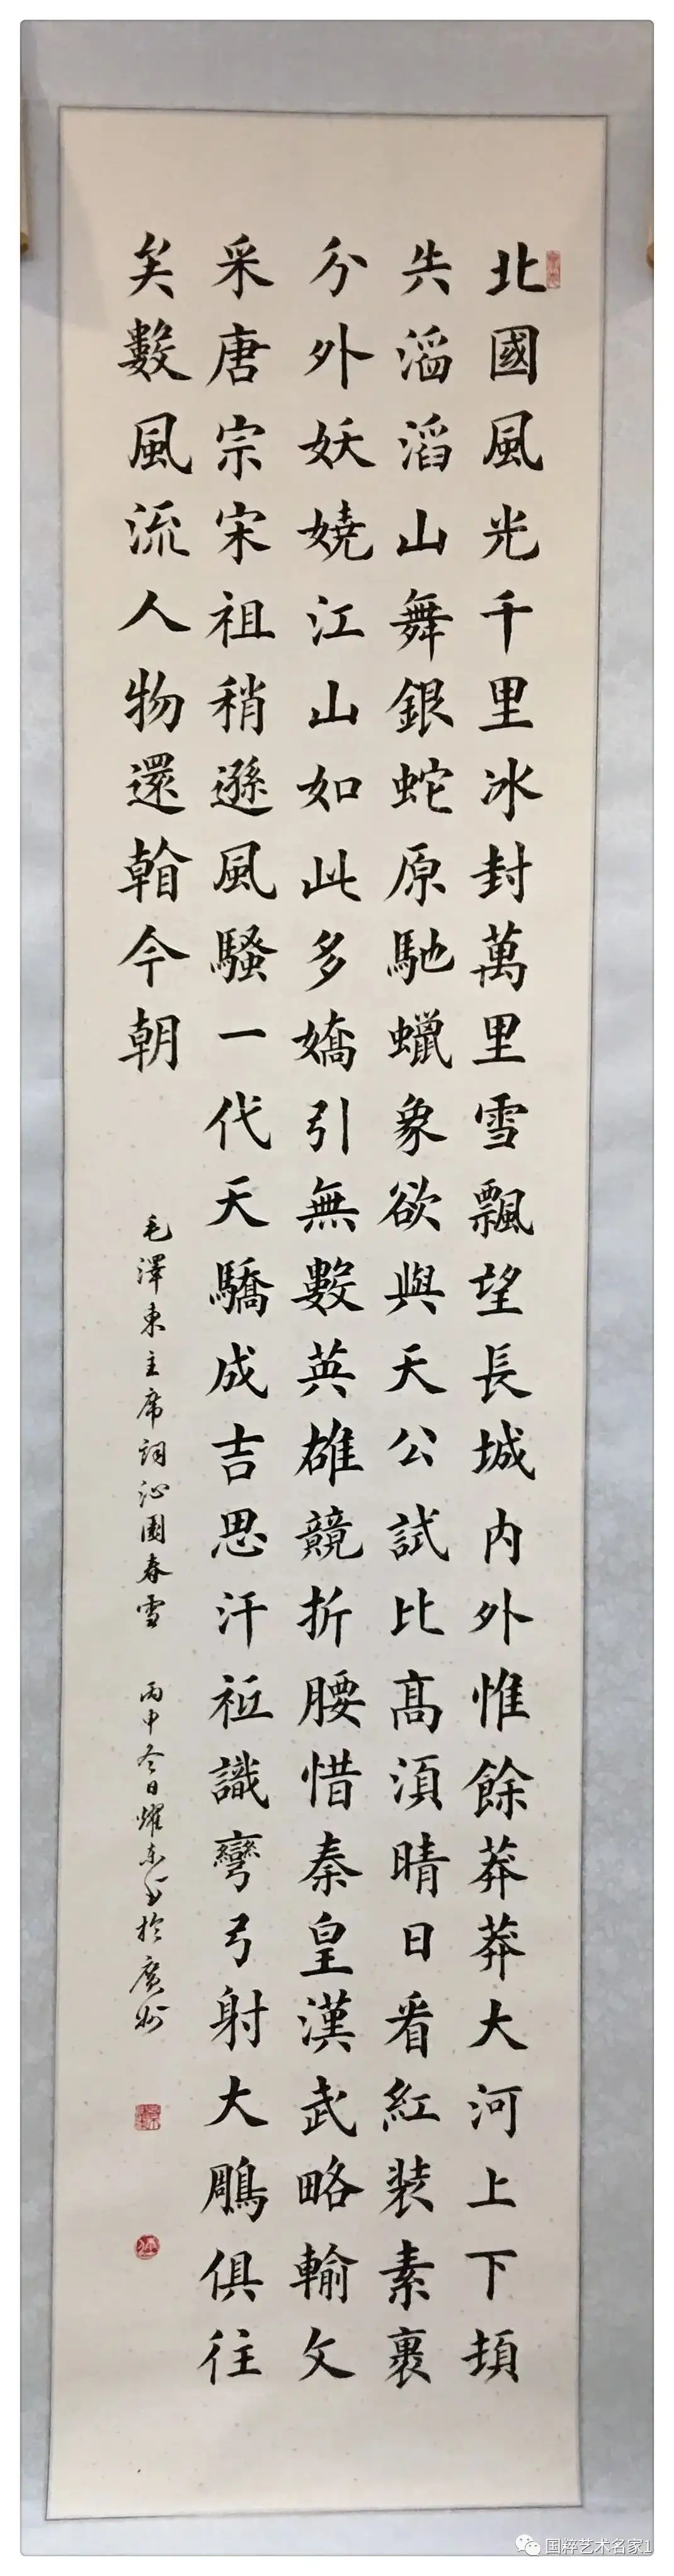 北國風光千里冰封萬里雪飄望長城内外惟餘莽莽大河上下頓
失滔滔山舞銀蛇原馳蠟象欲與天公試比髙須晴日看紅装素裹
分外妖嬈江山如此多嬌引無數英雄競折腰惜秦皇漢武略輸文
采唐宗宋祖稍遜風騷一代天驕成吉思汗祗識彎弓射大鵰俱往
矣數風流人物還看今朝
毛澤東主席詞沁園春雪 丙申冬日耀东书於廣州
国粹艺术名家1